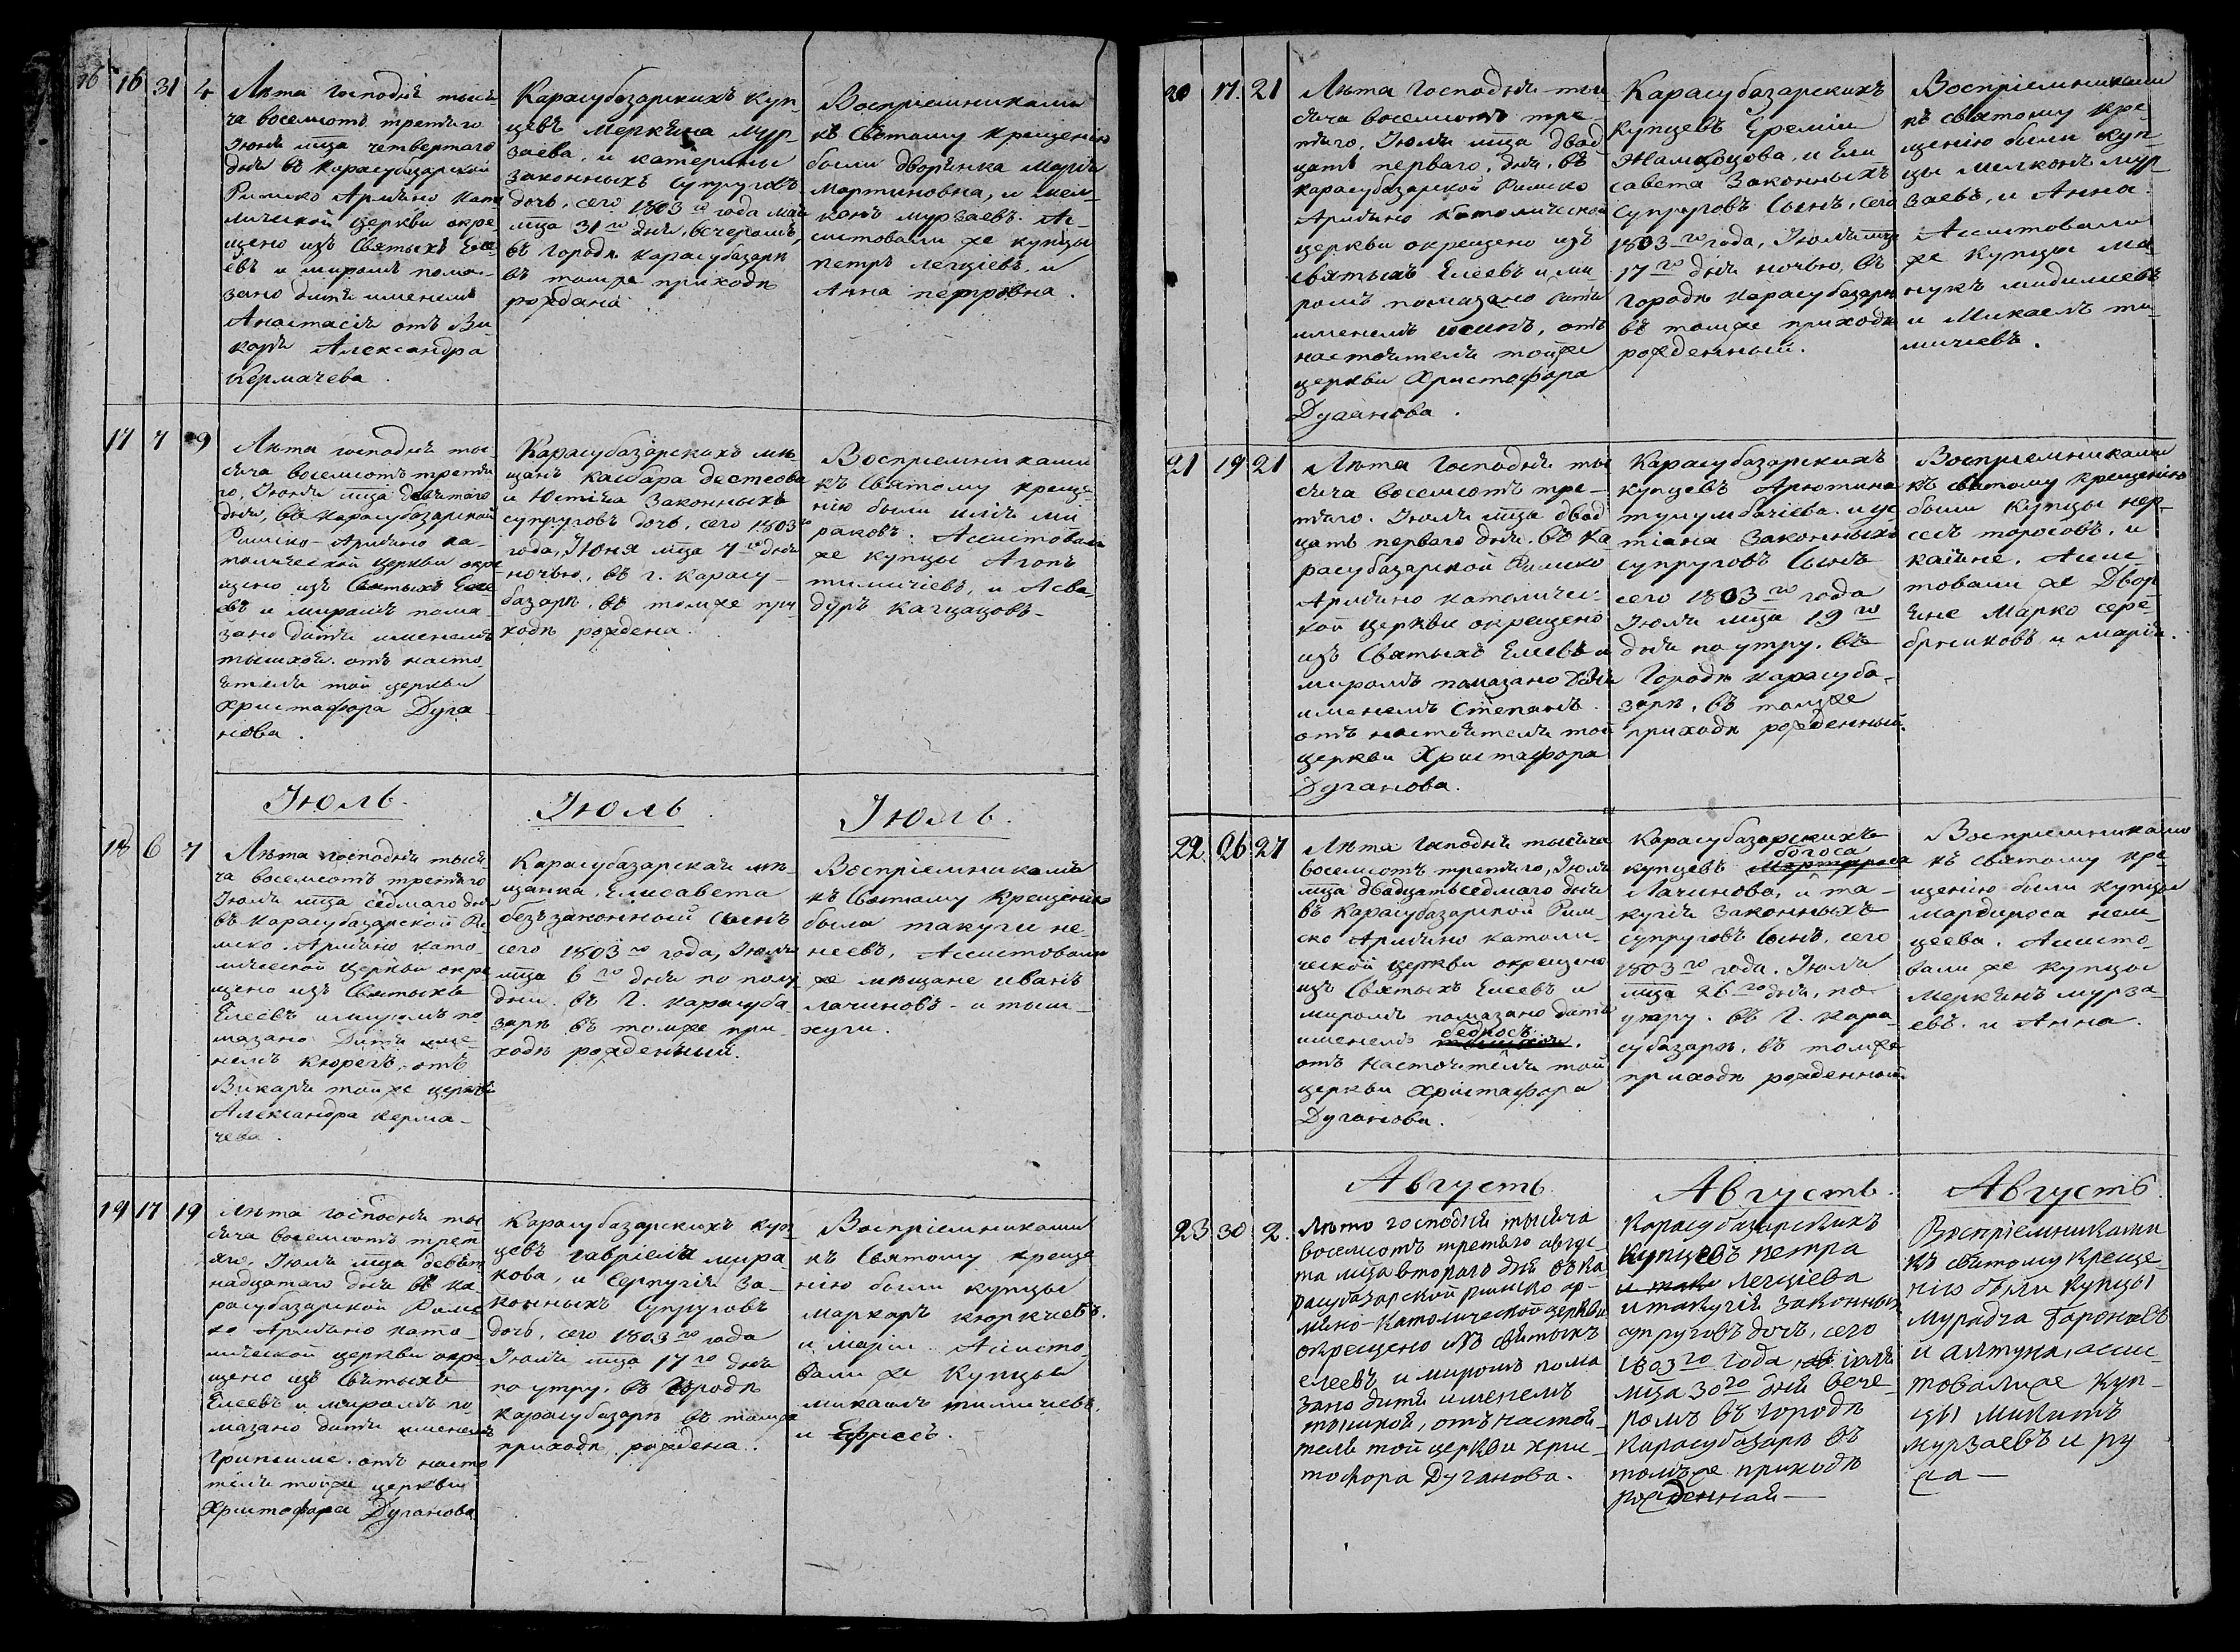 16 16 31 4
Лѣта Господня тыся
ча восемсотъ третяго
Іюня мца четвертаго
дня въ Карасубазарской
Римско Армяно Като
лической церкви окре
щено изъ Святыхъ Еле
евъ и миромъ пома-
зано дитя именемъ
Анастасія отъ Ви
карія Александра
Кермачева.
Карасубазарскихъ куп-
цевъ Меркъина Мур-
заева, и катерины
законныхъ супруговъ
дочь, сего 1803го года мая
мца 31го дня, вечеромъ,
въ городѣ Карасубазарѣ
въ томже приходѣ
рождена
Воспріемниками
къ Святому крещенію
были дворянка Марія
Мартиновна, и мел-
конъ мурзаевъ. Ас-
систовали же купцы
петръ легціевъ, и
Анна петровна.
17 7 9
Лѣта господня ты-
сяча восемсотъ третя
го, Іюня мца девятаго
дня, въ Карасубазарской
Римско-Армяно ка-
толической церкви окре
щено изъ Святыхъ Еле
евъ и миромъ пома
зано дитя именемъ
тышхои. отъ насто-
ятеля той церкви
Христафора Дуга
нова.
Карасубазарскихъ мѣ-
щанъ каспара дестеова
и Юстіна законныхъ
супруговъ дочь, сего 1803го
года, Іюня мца 7го дня
ночью, въ г. Карасу-
базарѣ, въ томже при
ходѣ рождена.
Воспріемниками
къ Святому креще-
нію были илія ми
раковъ. Ассистовали
же купцы Агопъ
тимичіевъ, и Асва-
дуръ кагцацовъ-
Іюль.
Іюль
Іюль.
18 6 7
Лѣта господня тыся
ча восемсотъ третяго
Іюля мца седмаго дня
въ Карасубазарской Ри
мско. Армяно като-
лической церкви окре
щено изъ Святыхъ
Елеевъ и миромъ по-
мазано Дитя име-
немъ Кюрегъ, отъ
Викарія тойже церкви
Александра Керма-
чева.
Карасубазарская мѣ-
щанка, Елисавета
беззаконный сынъ
сего 1803го года, Іюля
мца 6го дня по полу
дни. въ Г. Карасуба-
зарѣ въ томже при-
ходѣ рожденный.
Воспріемникамъ
къ Святому крещенію
была такуги не-
неевъ, Ассистовали
же мѣщане иванъ
лачиновъ - и тыш-
хуги.
19 17 19
Лѣта господня ты
сяча восемсотъ трет
яго, Іюля мца девят
надцатаго дня въ Ка-
расубазарской Римс
ко Армяно като-
лической церкви окре-
щено изъ Святыхъ
Елеевъ и миромъ по-
мазано дитя именемъ
Грипсиме. отъ насто
теля тойже церкви
Христофора Дуганова
Карасубазарскихъ куп
цевъ гавріела мира
кова, и Серпугія за-
конныхъ супруговъ
дочь, сего 1803го года
Іюля мца 17го дня
по утру, въ городѣ
Карасубазарѣ въ томже
приходѣ рождена.
Воспріемниками
къ Святому креще
нію были купцы
Маркаръ кюркчіевъ.
и Марія. Ассисто-
вали же Купцы
микаилъ тимичіевъ.
и
20 17. 21
Лѣта Господня ты
сяча восемсотъ тре-
тяго, Іюля мца двад
цать перваго, дня, въ
Карасубазарской Римско
Армяно Католической
церкви окрещено изъ
святыхъ Елеевъ и ми
ромъ помазано дитя
именемъ осипъ, отъ
настоятеля тойже
церкви Христофора
Дуганова.
Карасубазарскихъ
купцевъ Ереміи
и Ели
савета законныхъ
Супруговъ Сынъ, сего
1803го года, Іюля мца
17го дня ночью, въ
городѣ Карасубазарѣ
въ томже приходѣ
рожденный.
Воспріемниками
къ святому кре-
щенію были куп-
цы мелконъ мур-
заевъ, и Анна.
Ассистовали
же купцы ма-
нукъ мидишевъ
и Микаелъ ти-
мичіевъ.
21 19 21
Лѣта Господня ты
сяча восемсотъ тре-
тяго. Іюля мца двад
цать перваго дня. въ Ка
расубазарской Римско
Армяно католичес-
кой церкви окрещено
изъ Святыхъ Елеевъ и
миромъ помазано дитя
именемъ Степанъ.
отъ настоятеля той
церкви Христафора
Дуганова.
Карасубазарскихъ
купцевъ Арютина
тулумбачіева. и
законныхъ
супруговъ Сынъ
сего 1803го года
Іюля мца 19го
дня по утру. въ
Городѣ Карасуба-
зарѣ, въ томже
приходѣ рожденный.
Воспріемниками
къ святому крещенію
были купцы нер-
сесъ торосовъ, и
каяне, Асси-
товали же Двор
яне Марко сере-
бряковъ и марія.
22. 26 27
Лѣта Господня тысяча
восемсотъ третяго, Іюля
мца двадцатьседмаго дня
въ Карасубазарской Рим-
ско Армяно католи-
ческой церкви окрещено
изъ Святыхъ Елеевъ и
миромъ помазано дитя
бедросъ.
именемъ
отъ настоятеля той
церкви Христафора
Дуганова.
Карасубазарскихъ
богоса
купцевъ Мартироса
Лачинова, и та-
кугія законныхъ
супруговъ Сынъ, сего
1803го года. Іюля
мца 26го дня, по
утру. въ Г. Кара-
субазарѣ, въ томже
приходѣ рожденный.
Воспріемниками
къ святому кре-
щенію были купцы
мардироса нем-
цеева. Ассисто-
вали же Купцы
Меркѣинъ мурза-
евъ. и Анна.
Августъ
Августъ.
Августъ
23 30 2.
Лѣто господня тысяча
восемсотъ третяго авгус-
та мца втораго дня въ Ка
расубазарской римско ар-
мяно-Католической церкви
окрещено изъ святыхъ
елеевъ и миромъ пома
зано дитя именемъ
тышхои, отъ настоя-
теля той церкви хрис-
тофора Дуганова.
Карасубазарскихъ
Купцевъ петра
и таку легціева
и такугія законныхъ
супруговъ дочь, сего
1803го года, іюля
мца 30го дня вече-
ромъ въ городѣ
Карасубазарѣ въ
томъже приходѣ
рожденная-
Воспріемниками
къ святому креще-
нію были купцы
мурадча
и алтунъ, асси-
товалиже Куп-
цы Микитъ
мурзаевъ и ру
са-